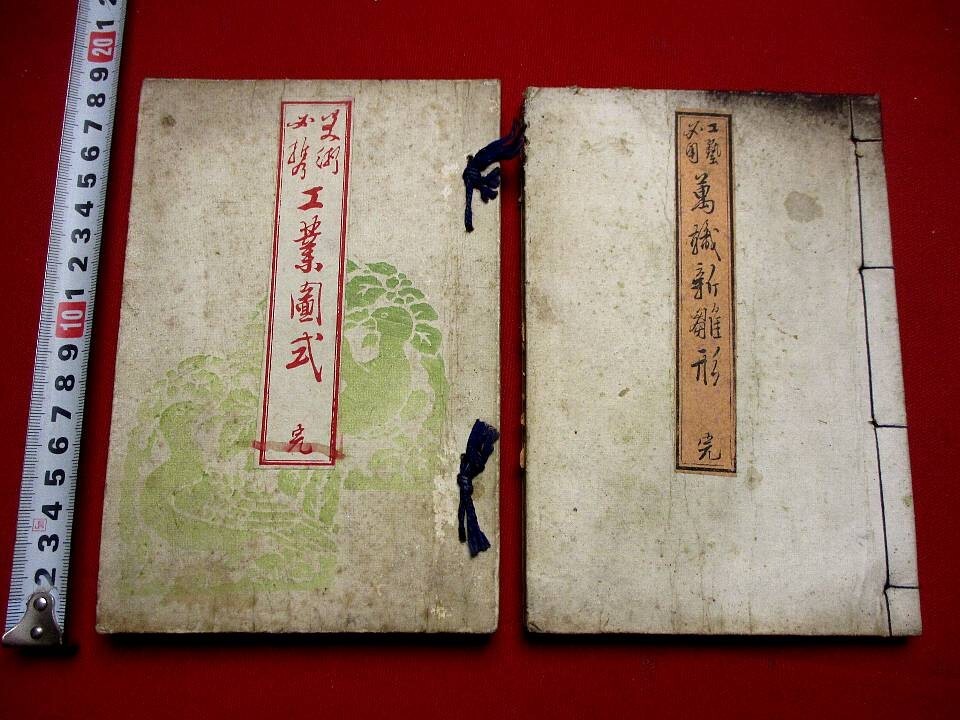 美術
必携
工業圖式
完
工藝
必用
萬職新雛形
完
2 3 4 5 6 7 8 9 10 1 2 3 4 5 6 7 8 9 20 1